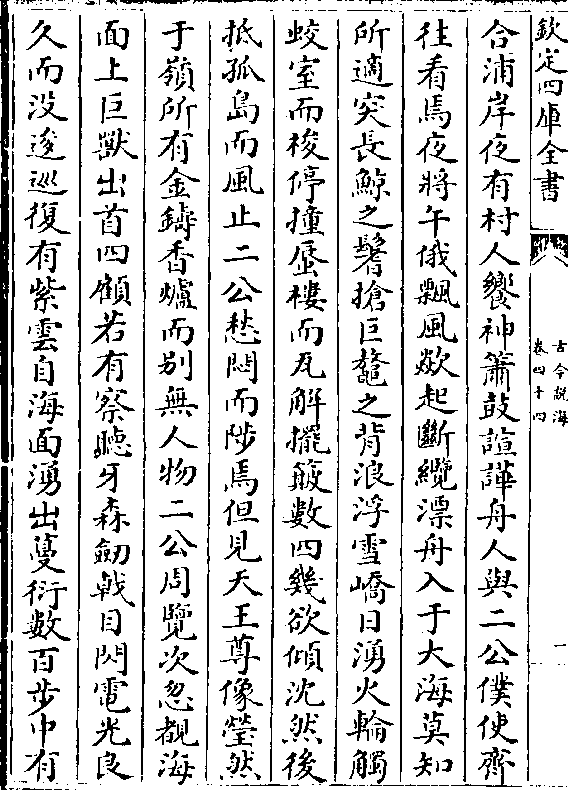 欽定四庫全書
古今說海
卷四十四
一
合浦岸夜有村人饗神簫鼓諠譁舟人與二公僕使齊
往看焉夜將午俄飄風歘起斷纜漂舟入于大海莫知
所適突長鯨之鬐搶巨鼇之背浪浮雪嶠日湧火輪觸
蛟室而梭停撞蜃樓而瓦解擺簸數四幾欲傾沈然後
抵孤島而風止二公愁悶而陟焉但見天王尊像瑩然
于嶺所有金鑄香爐而別無人物二公周覽次忽覩海
面上巨獸出首四顧若有察聽牙森劒戟目閃電光良
久而没逡巡復有紫雲自海面湧出蔓衍數百步中有